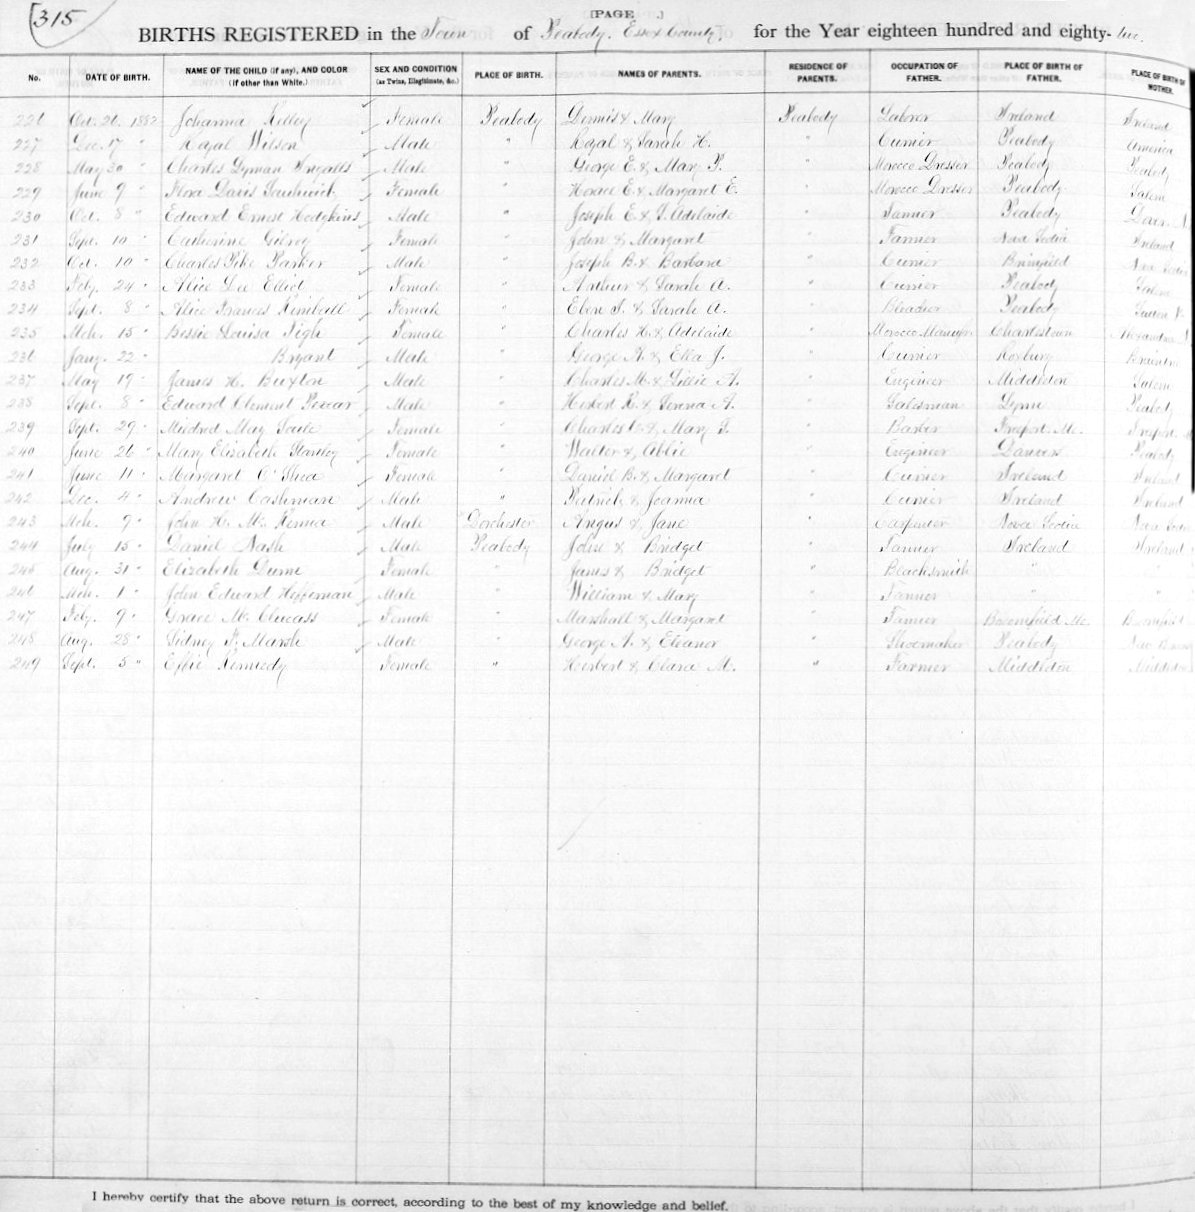 315
[PAGE .]
BIRTHS REGISTERED in the Town of Peabody, Essex County, for the Year eighteen hundred and eighty-two.
No. DATE OF BIRTH. NAME OF THE CHILD (if any), AND COLOR (if other than White.) SEX AND CONDITION (as Twins, Illegitimate, &c.) PLACE OF BIRTH. NAMES OF PARENTS. RESIDENCE OF PARENTS. OCCUPATION OF FATHER. PLACE OF BIRTH OF FATHER. PLACE OF BIRTH OF MOTHER.
226 Oct. 26, 1882 Johanna Kelley Female Peabody Dennis & Mary Peabody Laborer Ireland Ireland
227 Dec. 17 " Royal Wilson Male " Royal & Sarah H. " Currier Peabody America
228 May 30 " Charles Lyman Ingalls Male " George E. & Mary P. " Morocco Dresser Peabody Peabody
229 June 9 " Flora Davis Southwick Female " Horace E. & Margaret E. " Morocco Dresser Peabody Salem
230 Oct. 8 " Edward Ernest Hodgkins Male " Joseph E. & S. Adelaide " Tanner Peabody
231 Sept. 10 " Catherine Gilroy Female " John & Margaret " Tanner Nova Scotia Ireland
232 Oct. 10 " Charles Pike Parker Male " Joseph B. & Barbara " Currier Nova Scotia
233 Feby. 24 " Alice Lee Elliot Female " Arthur & Sarah A. " Currier Peabody Salem
234 Sept. 8 " Alice Frances Kimball Female " Eben S. & Sarah A. " Bleacher Peabody Sutton
235 Mch. 15 " Bessie Louisa Tigh Female " Charles H. & Adelaide " Morocco Charlestown
236 Jany. 22 " Bryant Male " George A. & Ella J. " Currier Roxbury
237 May 19 " James H. Buxton Male " Charles M. & Lizzie A. " Engineer Middleton Salem
238 Sept. 8 " Edward Clement Male " Herbert R. & A. " Salesman Lynn Peabody
239 Sept. 29 " Mildred May Soule Female " Charles & Mary " Barber Freeport, Me. Freport
240 June 26 " Mary Elizabeth Female " Walter & Abbie " Engineer Danvers Peabody
241 June 11 " Margaret O'Shea Female " Daniel B. & Margaret " Currier Ireland Ireland
242 Dec. 4 " Andrew Cashman Male " Patrick & Joanna " Currier Ireland Ireland
243 Mch. 9 " John H. Mc Kenna Male Dorchester Angus & Jane " Carpenter Nova Scotia Nova Scotia
244 July 15 " Daniel Nash Male Peabody John & Bridget " Tanner Ireland Ireland
245 Aug. 31 " Elizabeth Dunn Female " James & Bridget " Blacksmith " "
246 Mch. 1 " John Edward Heffernan Male " William & Mary " Tanner " "
247 Feby. 9 " Grace Mc Female " Marshall & Margaret " Farmer
248 Aug. 28 " Sidney F. Marsh Male " George A. & Eleanor " Shoemaker Peabody
249 Sept. 5 " Effie Kennedy Female " Herbert & Clara M. " Farmer Middleton Middleton
I hereby certify that the above return is correct, according to the best of my knowledge and belief.